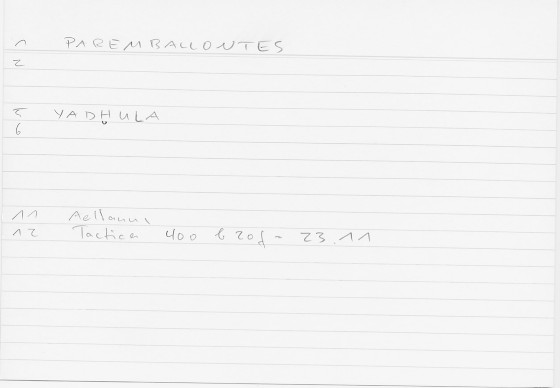 1 PAREMBALLONTES
2
5 YADḤULA
6
11 Aelianus,
12 Tactica 400 b 20f - 23.11